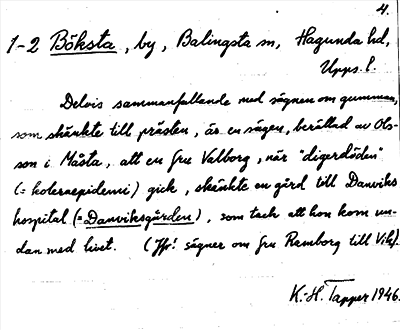 4.
1-2 Böksta, by, Balingsta sn, Hagunda hd,
Upps. l.
Delvis sammanfallande med sägnen om gumman,
som skänkte till prästen, är en sägen, berättad av Ols-
son i Måsta, att en fru Valborg, när "digerdöden"
(= koleraepidemi) gick, skänkte en gård till Danviks
hospital (= Danviksgården), som tack att hon kom un-
dan med livet. (Jfr! sägner om fru Ramborg till Vik).
K.-H. Tapper 1946.